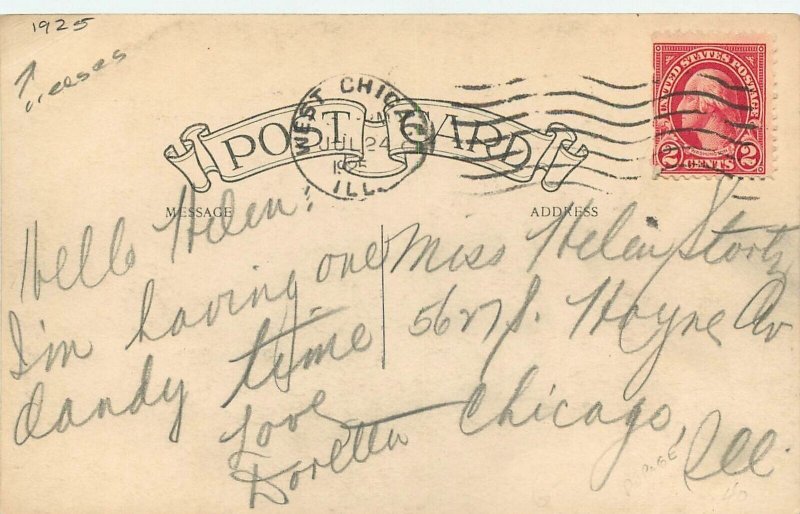 1925
creases
WEST CHICAGO
JUL 24
1925
ILL.
UNITED STATES POSTAGE
2 CENTS 2
POST CARD
MESSAGE
ADDRESS
Hello Helen:
I'm having one
dandy time
Love
Doretta
Miss Helen Stortz
5627 S. Hoyne Av
Chicago,
Ill.